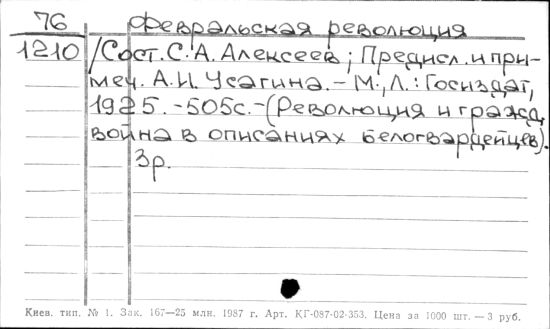 76 Февральская революция
1210 /Сост. С. А. Алексеев; Предисл. и при-
меч. А. И. Усагина. – М., Л.: Госиздат,
1925. – 505с. – (Революция и гражд.
война в описаниях белогвардейцев).
3р.
Киев. тип. № 1. Зак. 167—25 млн. 1987 г. Арт. КГ-087-02-353. Цена за 1000 шт. — 3 руб.